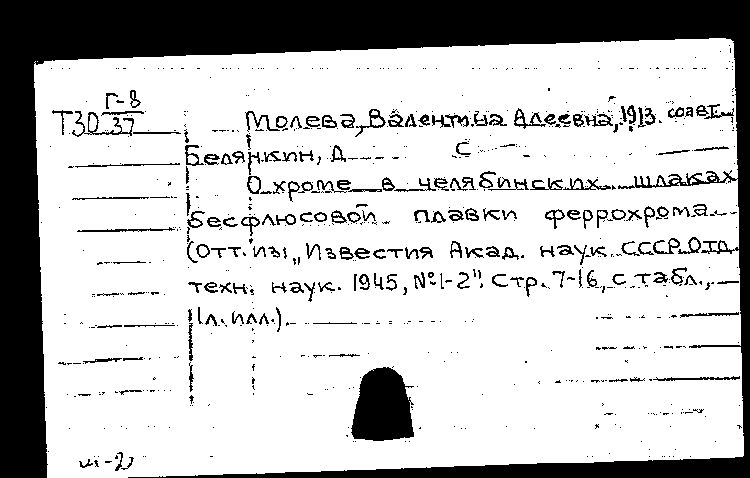 Г-8
Т30 37
Молева, Валентина Алеевна, 1913. соавт.
Белянкин, Д С
О хроме в челябинских шлаках
бесфлюсовой плавки феррохрома
(Отт. из „Известия Акад. наук СССР. Отд.
техн. наук. 1945, №1-2". Стр. 7-16, с табл.,
1 л. илл.).